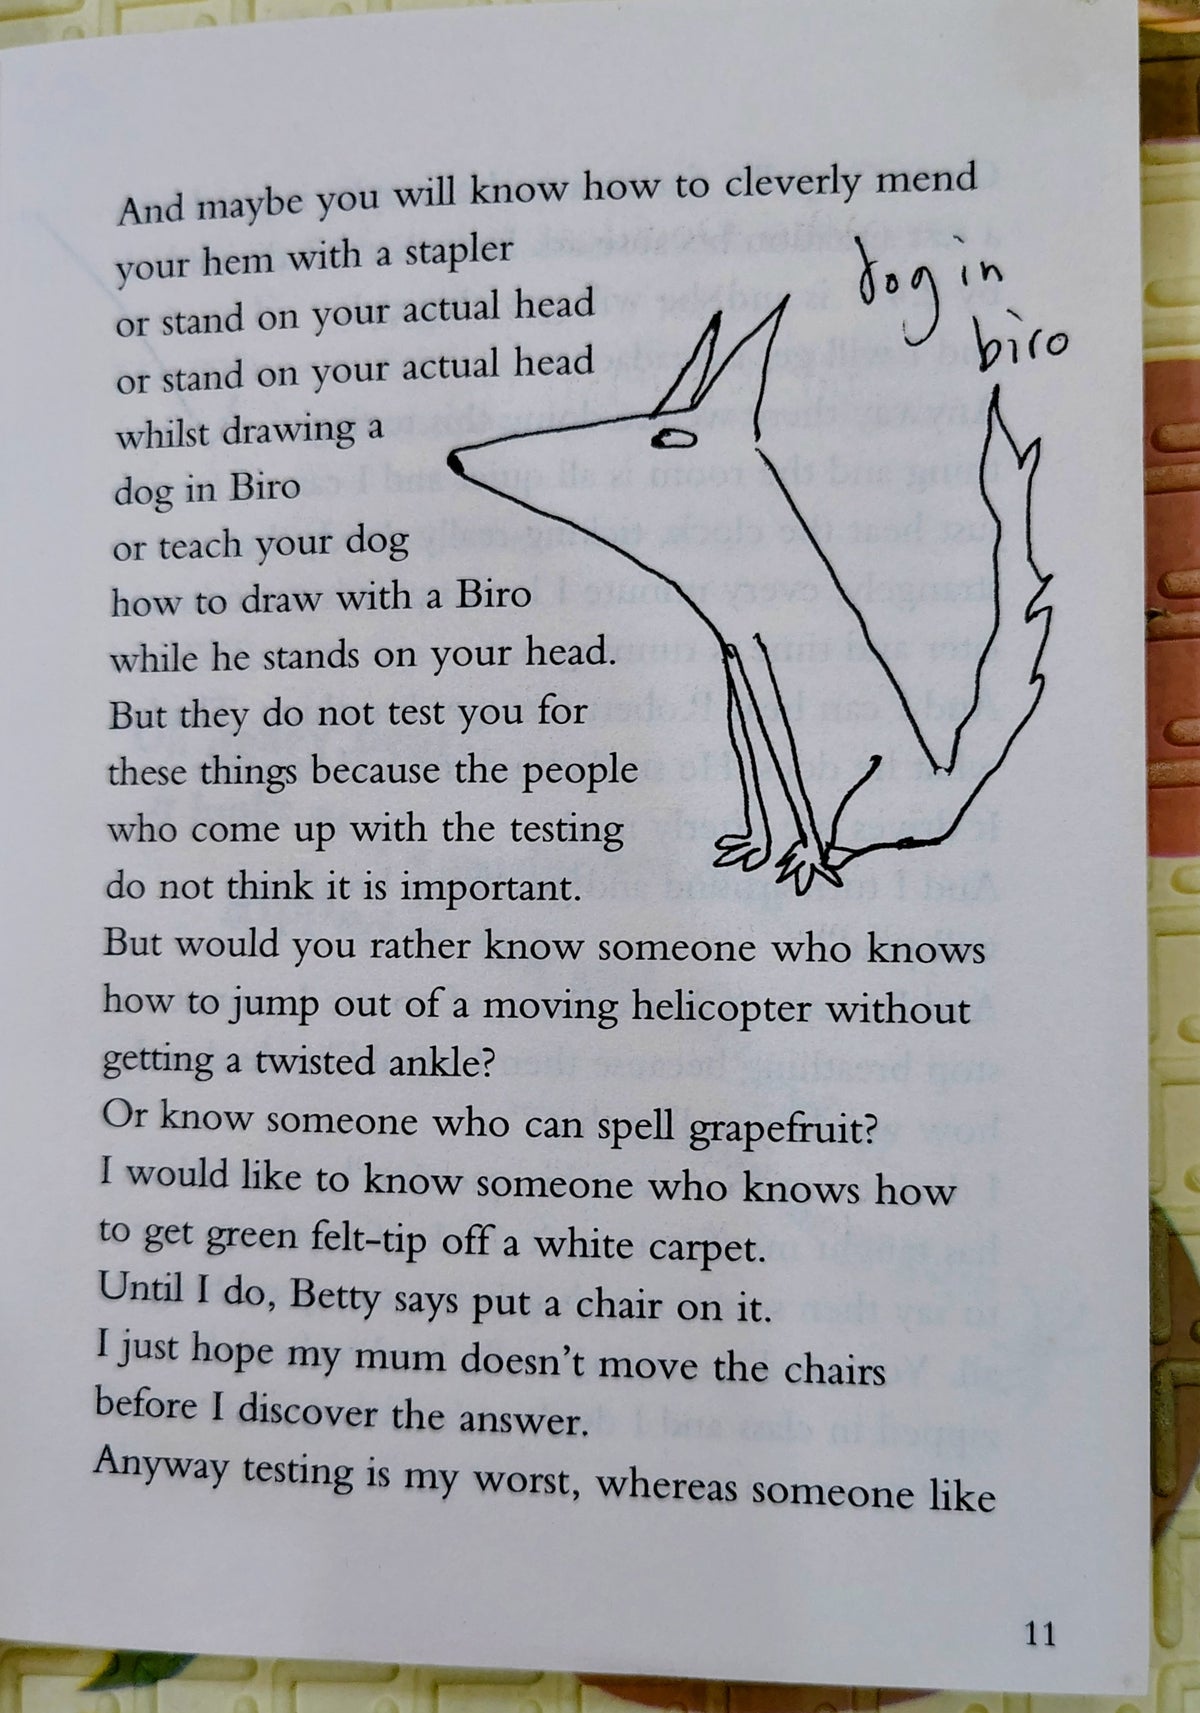 And maybe you will know how to cleverly mend
your hem with a stapler
or stand on your actual head
or stand on your actual head
whilst drawing a
dog in Biro
or teach your dog
how to draw with a Biro
while he stands on your head.
But they do not test you for
these things because the people
who come up with the testing
do not think it is important.
But would you rather know someone who knows
how to jump out of a moving helicopter without
getting a twisted ankle?
Or know someone who can spell grapefruit?
I would like to know someone who knows how
to get green felt-tip off a white carpet.
Until I do, Betty says put a chair on it.
I just hope my mum doesn't move the chairs
before I discover the answer.
Anyway testing is my worst, whereas someone like
dog in
biro
11